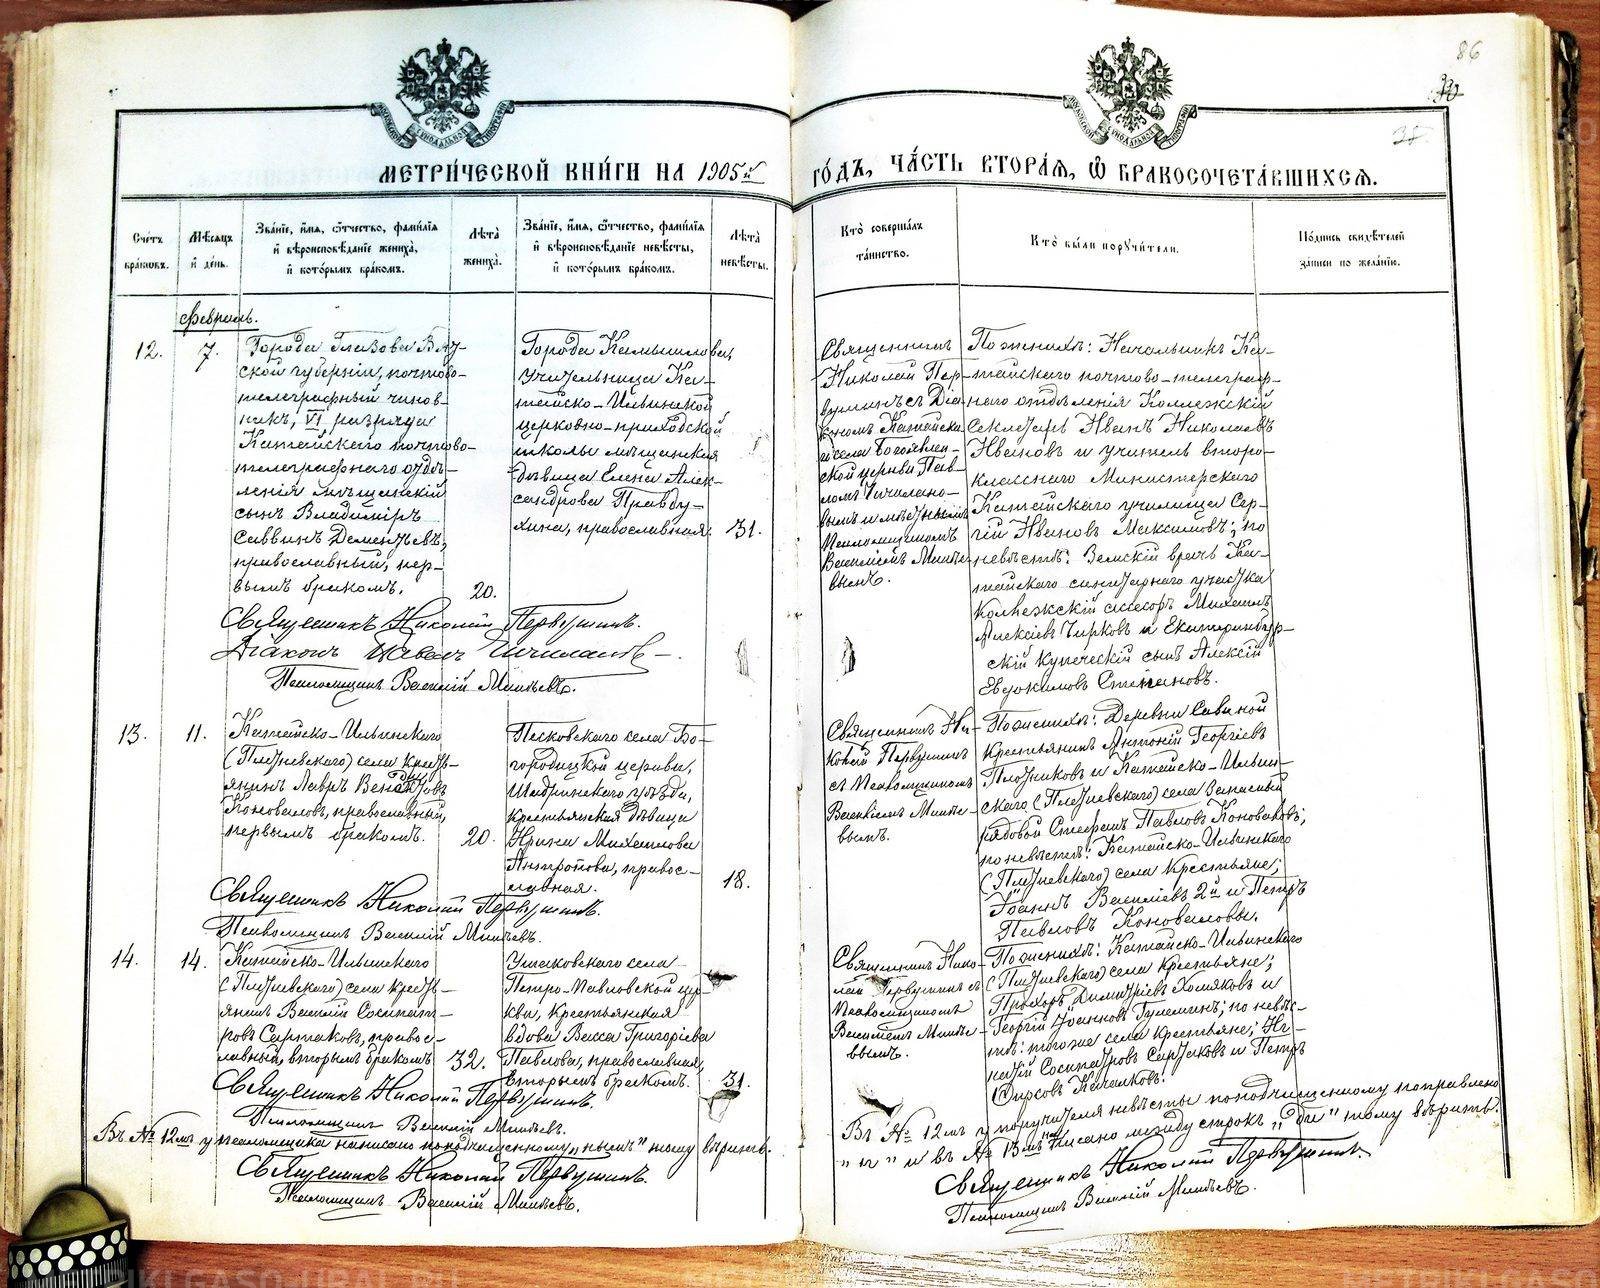 86
МЕТРИ́ЧЕСКОЙ КНИ́ГИ НА 1905й
ГО́ДЪ, ЧА́СТЬ ВТОРА́Я, Ѽ БРАКОСОЧЕТА́ВШИХСЯ.
Сче́тъ
бра́ковъ.
Мѣ́сяцъ
и҆ де́нь.
Зва́нїе, и҆́мя, ѻ҆́тчество, фами́лїя
и҆ вѣроисповѣ́данїе жениха̀,
и҆ кото́рымъ бра́комъ.
Лѣ́та
жениха̀.
Зва́нїе, и҆́мя, ѻ҆́тчество, фами́лїя
и҆ вѣроисповѣ́данїе невѣ́сты,
и҆ кото́рымъ бра́комъ.
Лѣ́та
невѣ́сты.
Кто̀ соверша́лъ
та́инство.
Кто̀ бы́ли поручи́тели.
По́дпись свидѣ́телей
за́писи по жела́нїю.
Февраль.
12.
7.
Города Глазова Вят-
ской губернiи, почтово-
телеграфный чинов-
никъ, VI разряда
Катайскаго почтово-
телеграфнаго отдѣ-
ленiя мѣщанскiй
сынъ Владимiръ
Саввинъ Дементьевъ,
православный, пер-
вымъ бракомъ.
20.
Города Камышлова,
учительница Ка-
тайско-Ильинской
церковно-приходской
школы мѣщанская
дѣвица Елена Алек-
сандрова Правду-
хина, православная.
31.
Священникъ
Николай Пер-
вушинъ съ Дiа-
кономъ Катайска-
го села Богоявлен-
ской церкви Пав-
ломъ Чичилано-
вымъ и мѣстнымъ
Псаломщикомъ
Василiемъ Минѣе-
вымъ.
По женихѣ: Начальникъ Ка-
тайскаго почтово-телеграф-
наго отдѣленiя Коллежскiй
Секретарь Иванъ Николаевъ
Ивановъ и учитель второ-
класснаго Министерскаго
Катайскаго училища Сер-
гiй Ивановъ Максимовъ; по
невѣстѣ: Земскiй врачъ Ка-
тайскаго санитарнаго участка
Коллежскiй ассесоръ Михаилъ
Алексiевъ Чирковъ и Екатеринбур-
скiй купеческiй сынъ Алексiй
Евдокимовъ Степановъ.
Священникъ Николай Первушинъ.
Дiаконъ Павелъ Чичилановъ
Псаломщикъ Василiй Минѣевъ.
13.
11.
Катайско-Ильинскаго
(Плотневскаго) села кресть-
янинъ Лавръ
Коноваловъ, православный,
первымъ бракомъ.
20.
Песковскаго села Бо-
городицкой церкви,
Шадринскаго уѣзда,
крестьянская дѣвица
Ирина Михаилова
Антропова, правос-
лавная.
18.
Священникъ Ни-
колай Первушинъ
съ Псаломщикомъ
Василiемъ Минѣе-
вымъ.
По женихѣ: Деревни Савиной
крестьянинъ Антонiй Георгiевъ
Плотниковъ и Катайско-Ильин-
скаго (Плотневскаго) села запасный
рядовой Стефанъ Павловъ Коноваловъ;
по невѣстѣ: Катайско-Ильинскаго
(Плотневскаго) села крестьяне;
Iоаннъ Василiевъ 2й и Петръ
Павловъ Коноваловы.
Священникъ Николай Первушинъ.
Псаломщикъ Василiй Минѣевъ.
14.
14.
Катайско-Ильинскаго
(Плотневскаго) села кресть-
янинъ Василiй Сосипат-
ровъ Сартаковъ, правос-
лавный, вторымъ бракомъ
32.
Ушаковскаго села
Петро-Павловской цер-
кви, крестьянская
вдова Васса Григорiева
Павлова, православная,
вторымъ бракомъ.
31.
Священникъ Нико-
лай Первушинъ съ
Псаломщикомъ
Василiемъ Минѣе-
вымъ.
По женихѣ: Катайско-Ильинскаго
(Плотневскаго) села крестьяне;
Прохоръ Димитрiевъ Хомяковъ и
Георгiй Iоанновъ по невѣс-
тѣ: того же села крестьяне; Иг-
натiй Сосипатровъ Сартаковъ и Петръ
Фирсовъ Качалковъ.
Священникъ Николай Первушинъ.
Псаломщикъ Василiй Минѣевъ.
Въ № 12мъ у псаломщика написано поподчищенному „нымъ" тому вѣрить.
Священникъ Николай Первушинъ.
Псаломщикъ Василiй Минѣевъ.
Въ № 12мъ у поручителя невѣсты поподчищенному поправлено
и въ № 13мъ писано между строкъ тому вѣрить.
Священникъ Николай Первушинъ.
Псаломщикъ Василiй Минѣевъ.